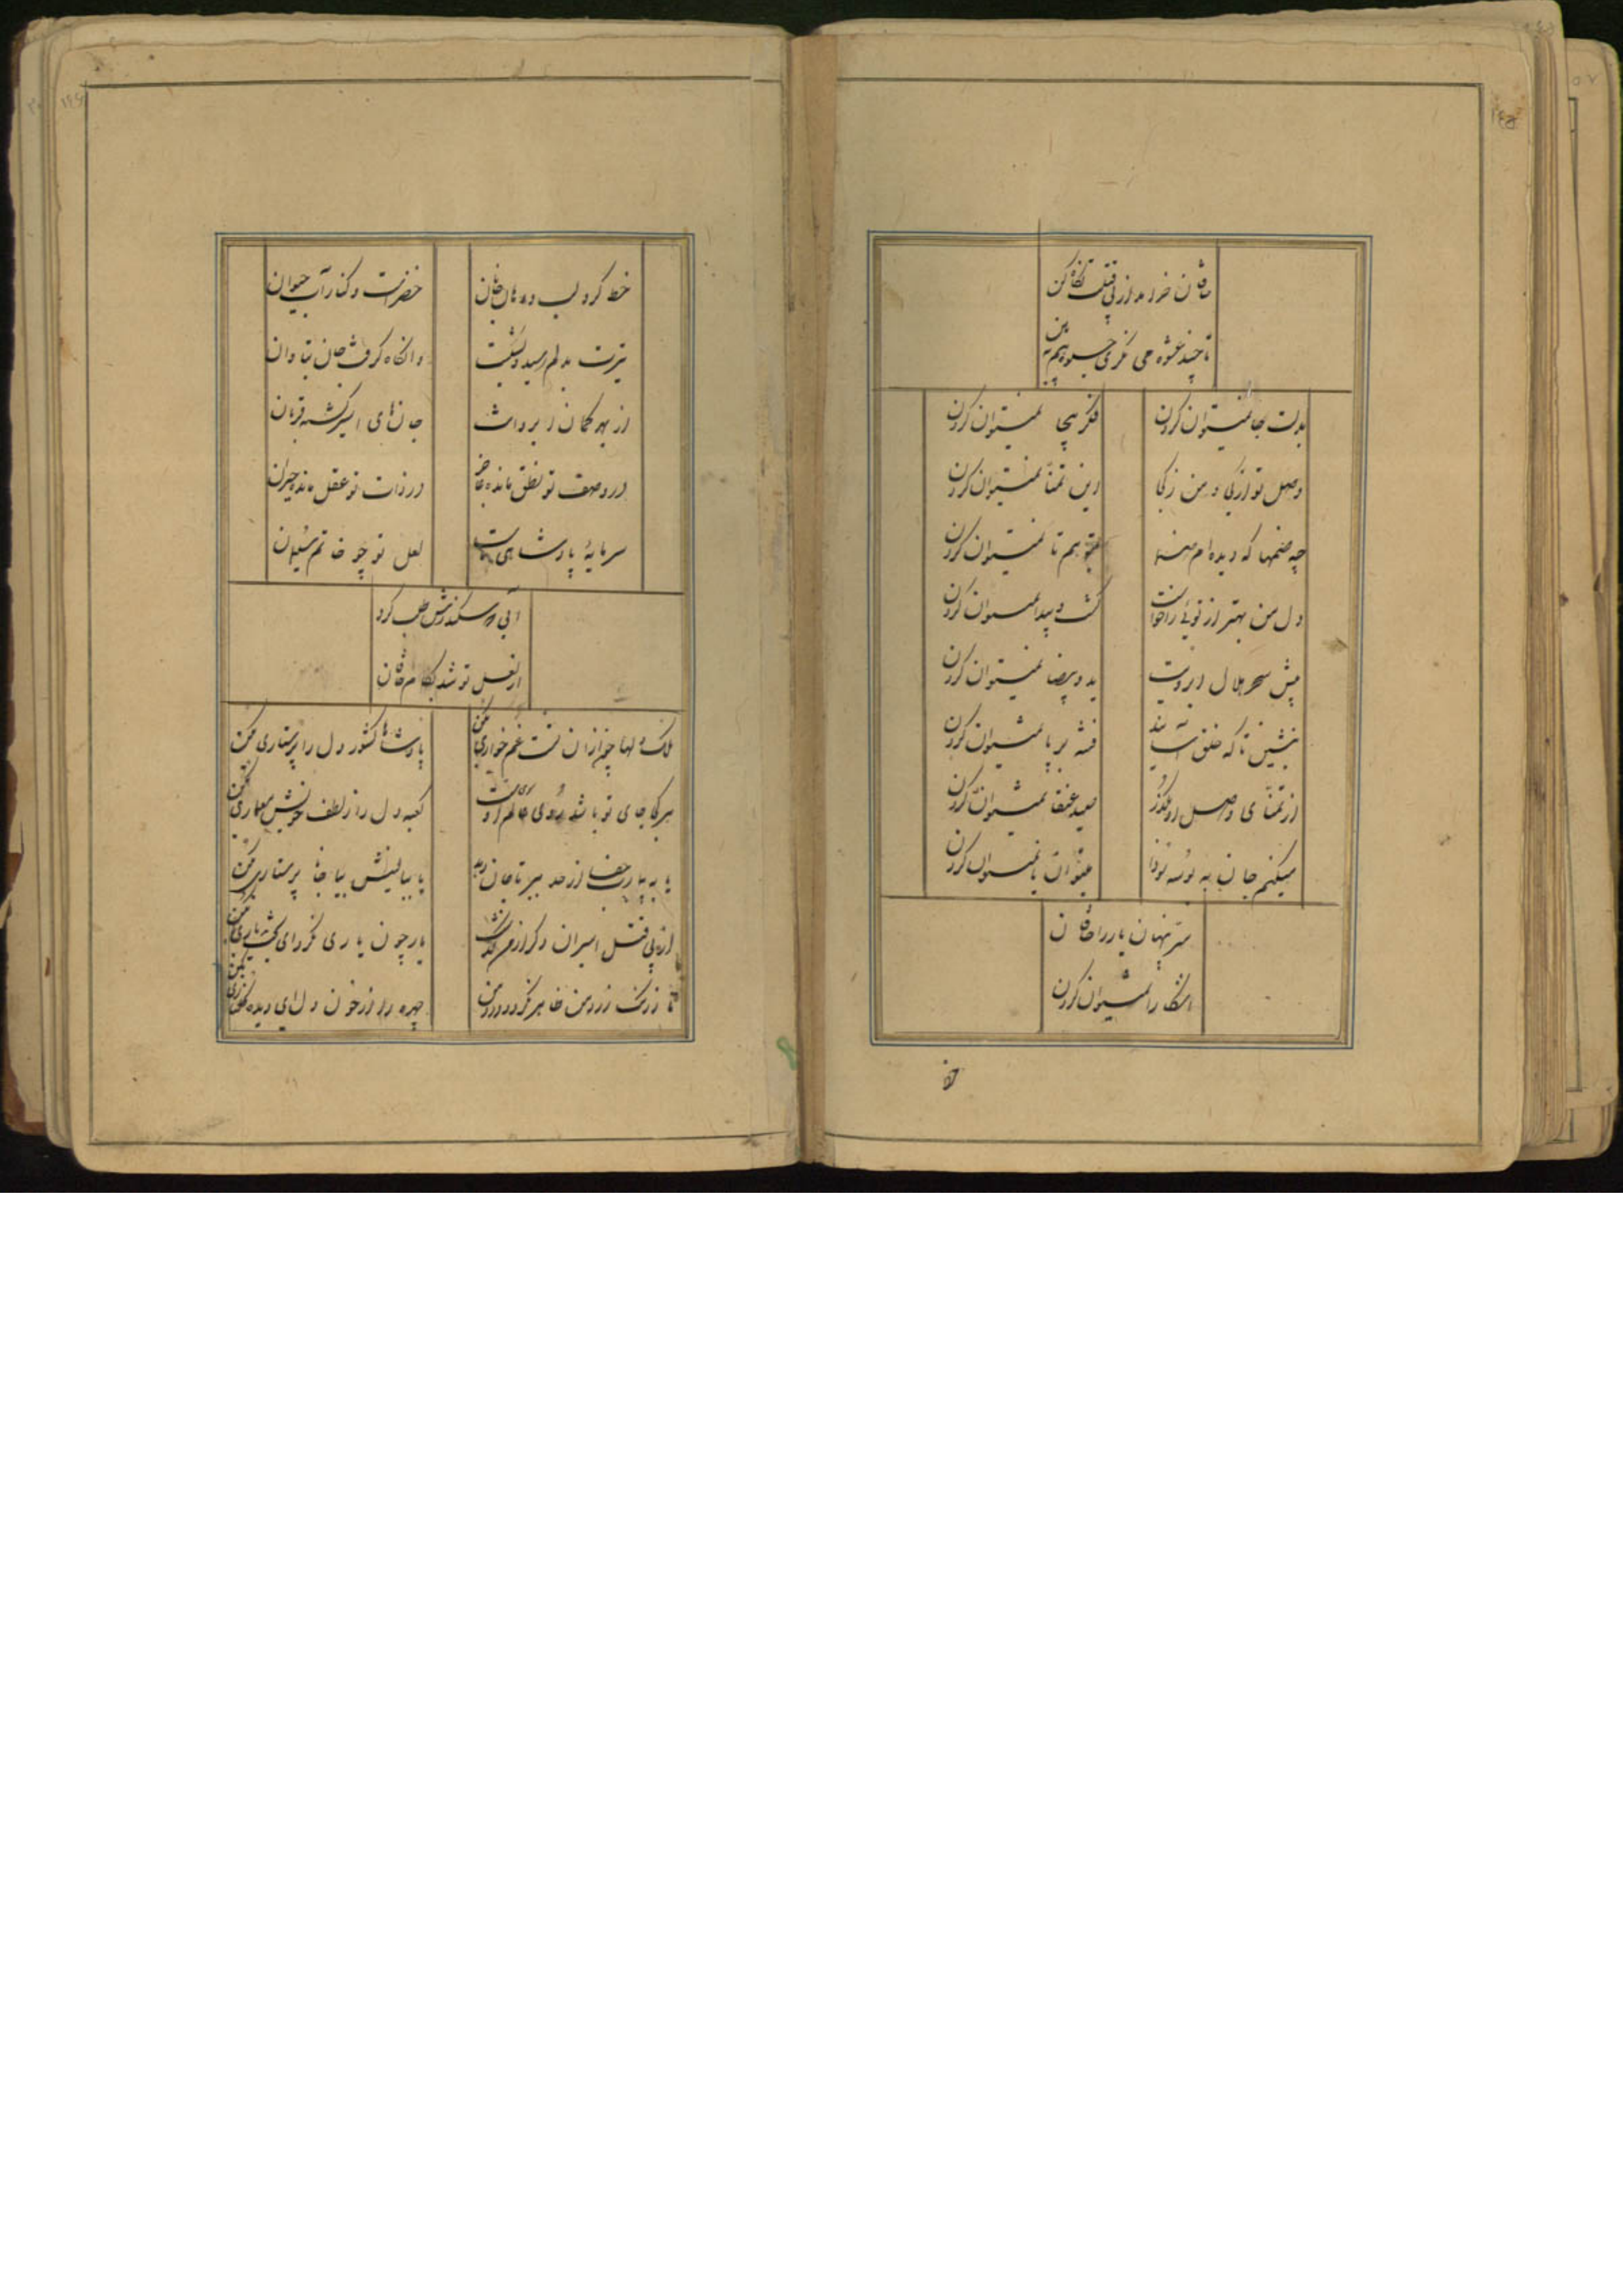 خاقان خرامد از پی قتلت نگاه کن
تا چند عشوه می نگری جلوه هم ببین
بدلت جا نمیتوان کردن
فکر بیجا نمیتوان کردن
وصل تو از کی و من ز کجا
این تمنا نمیتوان کردن
چه ضمنها که دیده ام
نمیتوان کردن
دل من بهتر از توئی را خواست
گشت و پیدا نمیتوان کردن
پیش سحر هلال ابرویت
ید و بیضا نمیتوان کردن
بنشین تا که خلق آسایند
فتنه بر پا نمیتوان کردن
از تمنای وصل او بگذر
صید عنقا نمیتوان کردن
میکنم جان به بوسه تو فدا
میتوان یا نمیتوان کردن
سر پنهان یار را خاقان
آشکارا نمیتوان کردن
خط
خط گرد لب و دهان جانان
خضر است و کنار آب حیوان
تیرت بدلم رسید و بنشست
وانگاه گرفت جان بتاوان
از بهر کمان ابروانت
جانهای اسیر گشته قربان
در وصف تو نطق مانده عاجز
در ذات تو عقل مانده حیران
سرمایهٔ پادشاهی ماست
لعل تو چو خاتم سلیمان
آبی که سکندرش طلب کرد
از لعل تو شد بکام خاقان
ملک دلها چون از آن تست غم خواری بکن
پادشاها کشور دل را پرستاری بکن
هر کجا جای تو باشد روی عالم سوی تست
کعبه دل را ز لطف خویش معماری بکن
یا به بیمارت جفا از حد ببر تا جان دهد
یا ببالینش بیا جانا پرستاری بکن
از پی قتل اسیران دگر از من گذشت
یار چون یاری نکرد ای بخت یاری بکن
تا ز رنگ زرد من ظاهر نگردد درد من
چهره را از خون دل ای دیده گلناری بکن